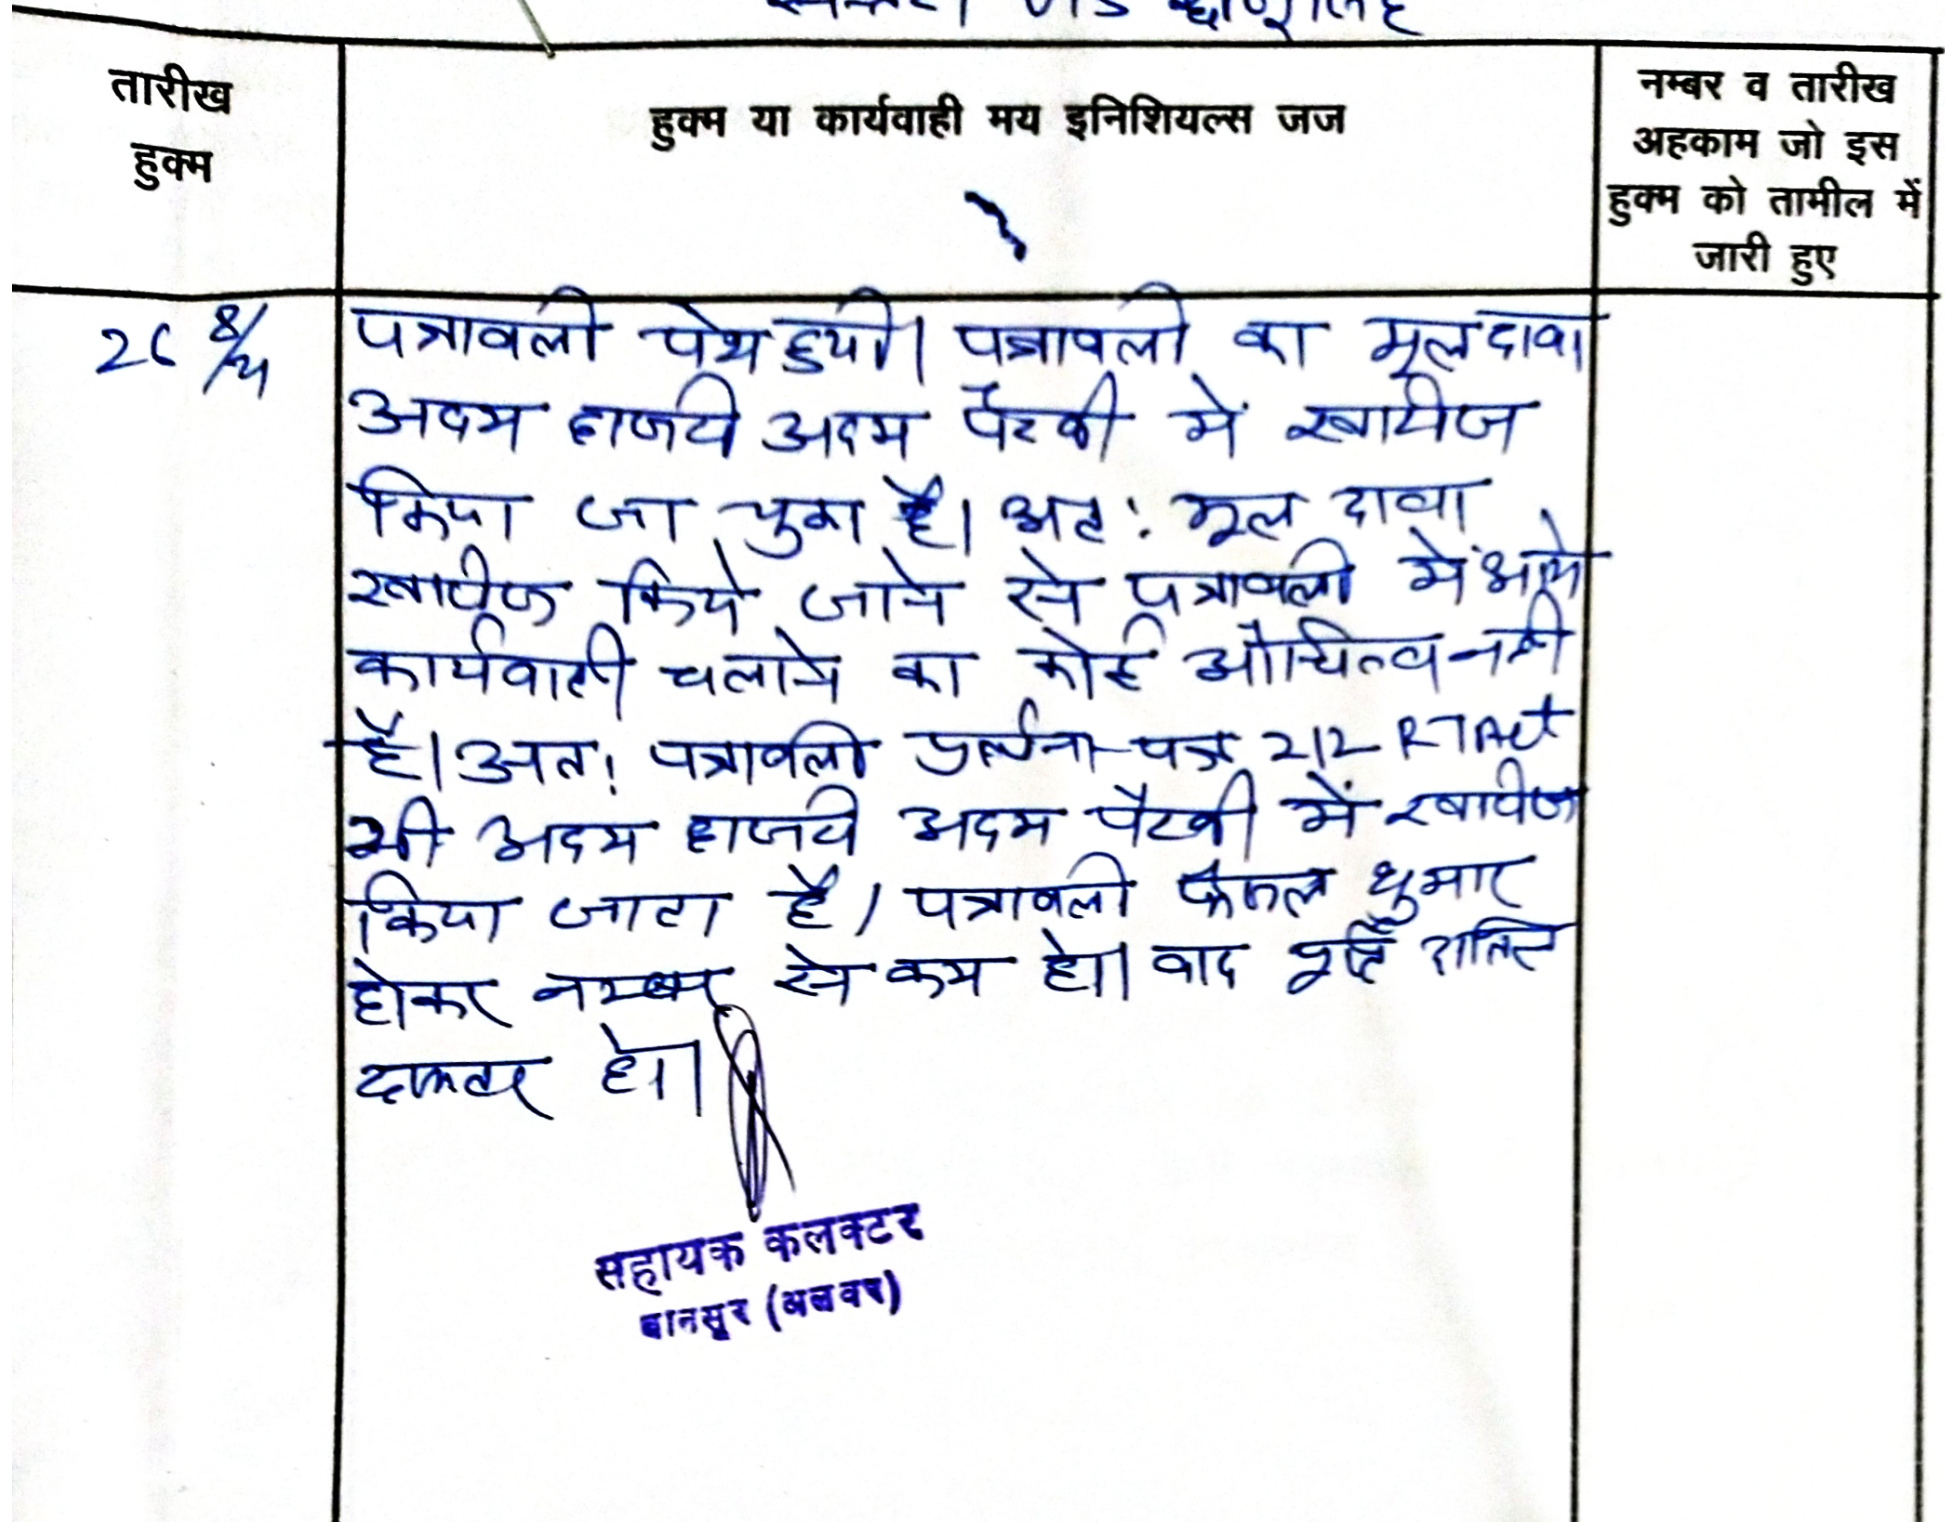 तारीख
हुक्म
हुक्म या कार्यवाही मय इनिशियल्स जज
नम्बर व तारीख
अहकाम जो इस
हुक्म को तामील में
जारी हुए
26 8/
पत्रावली पेश हुयी। पत्रावली का मूल दावा
अदम हाजरी अदम पैरवी में खारीज
किया जा चुका है। अतः मूल दावा
खारीज किये जाने से पत्रावली में आगे
कार्यवाही चलाने का कोई औचित्व नही
है। अतः पत्रावली प्रार्थना पत्र 212 RTAct
भी अदम हाजरी अदम पैरवी में खारीज
किया जाता है। पत्रावली फैसल शुमार
होकर नम्बर से कम हो। बाद पूर्ति दाखिल
दफ्तर हो।
सहायक कलक्टर
बानसूर (अलवर)